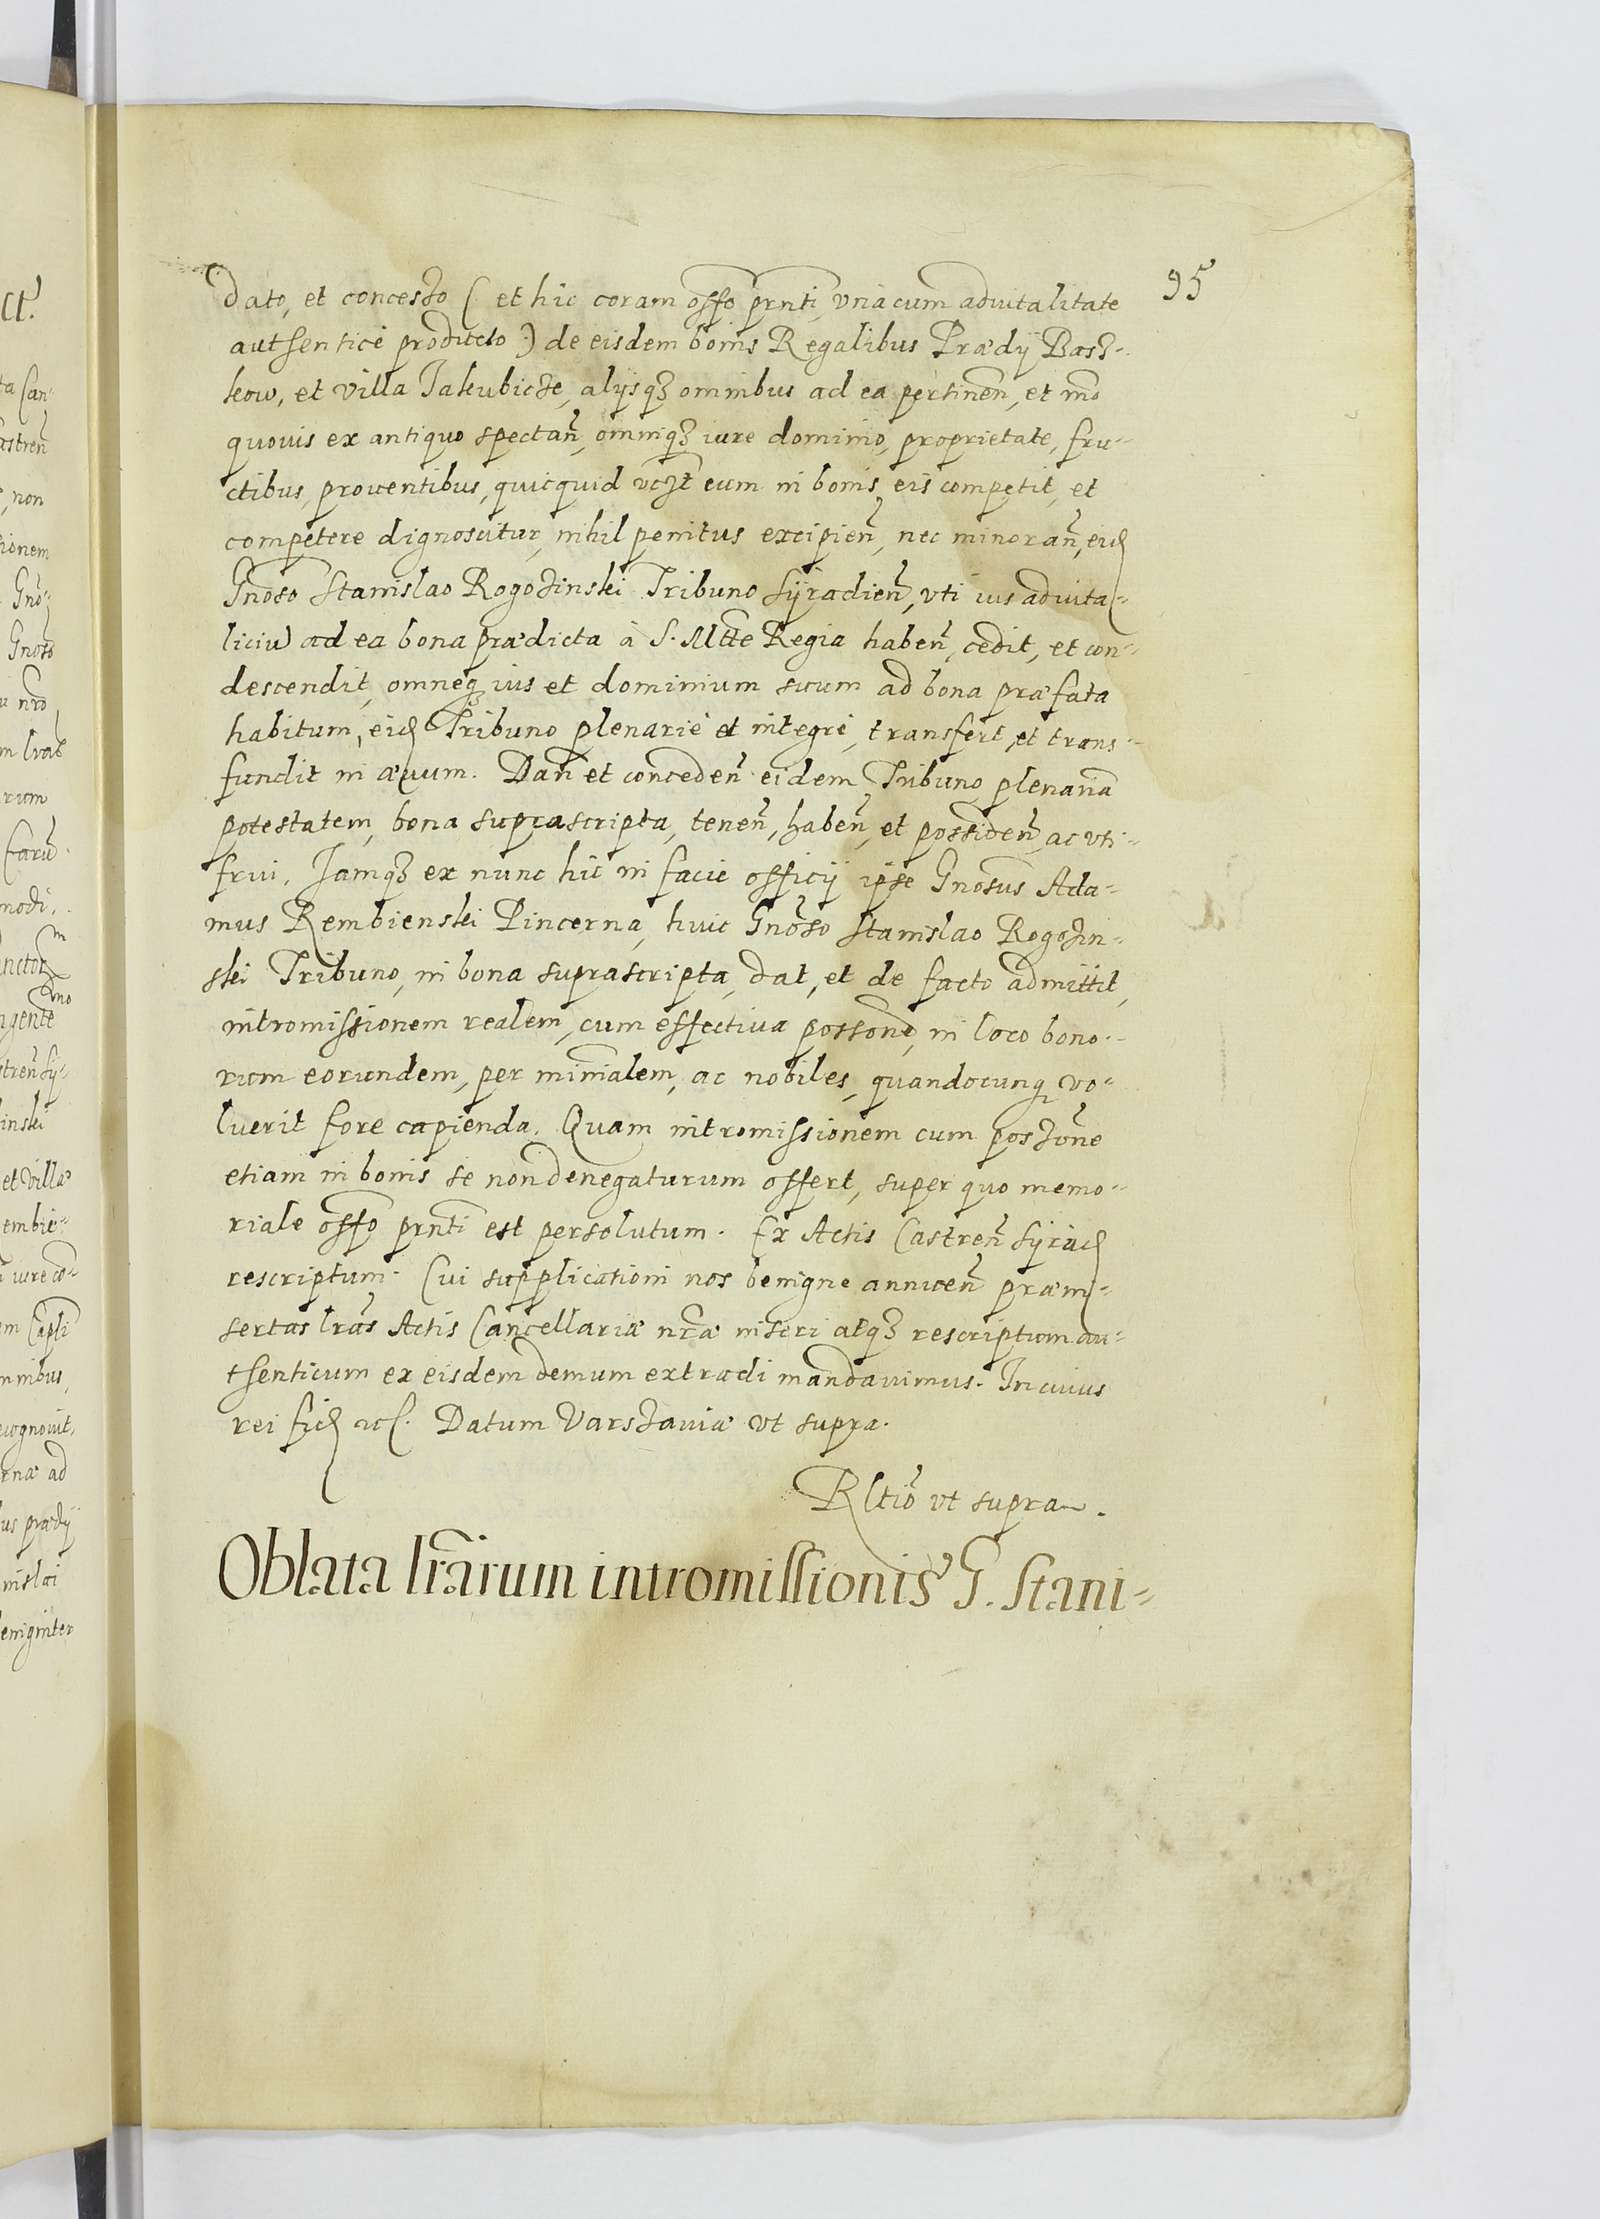 95
dato, et concesso (et hic coram offo prnti, vna cum aduitalitate
authentice producto:) de eisdem bonis Regalibus Prædij Basz-
kow, et villa Jakubicze, alijsqz omnibus ad ea pertinen, et mo
quouis ex antiquo spectan, omniqz iure dominio, proprietate, fru-
ctibus, prouentibus, quicquid eum in bonis eis competit, et
competere dignoscitur, nihil penitus excipien, nec minoran, eid
Gnoso Stanislao Rogozinski Tribuno Syradien, vti ius aduita-
liciu ad ea bona prædicta à S. Mtte Regia haben, cedit, et con-
descendit, omneq ius et dominium suum ad bona præfata
habitum, eid Tribuno plenariè et integrè, transfert, et trans-
fundit in æuum. Dan et conceden eidem Tribuno plenaria
potestatem, bona suprascripta, tenen, haben, et possiden, ac vti-
frui. Jamqz ex nunc hic in facie officij ipse Gnosus Ada-
mus Rembienski Pincerna, huic Gnoso Stanislao Rogozin-
ski Tribuno, in bona suprascripta, dat, et de facto admittit,
intromissionem realem, cum effectiua possone, in loco bono-
rum eorundem, per minialem, ac nobiles, quandocunq vo-
luerit fore capienda. Quam intromissionem cum possone
etiam in bonis se non denegaturum offert, super quo memo-
riale offo prnti est persolutum. Ex Actis Castren Syrad
rescriptum. Cui supplicationi nos benigne annuen præin-
sertas lras Actis Cancellariæ nræ inseri atqz rescriptum au-
thenticum ex eisdem demum extradi mandauimus. In cuius
rei fid Datum Varszauiæ vt supra.
Rltio vt supra.
Oblata lrarum intromissionis G. Stani-